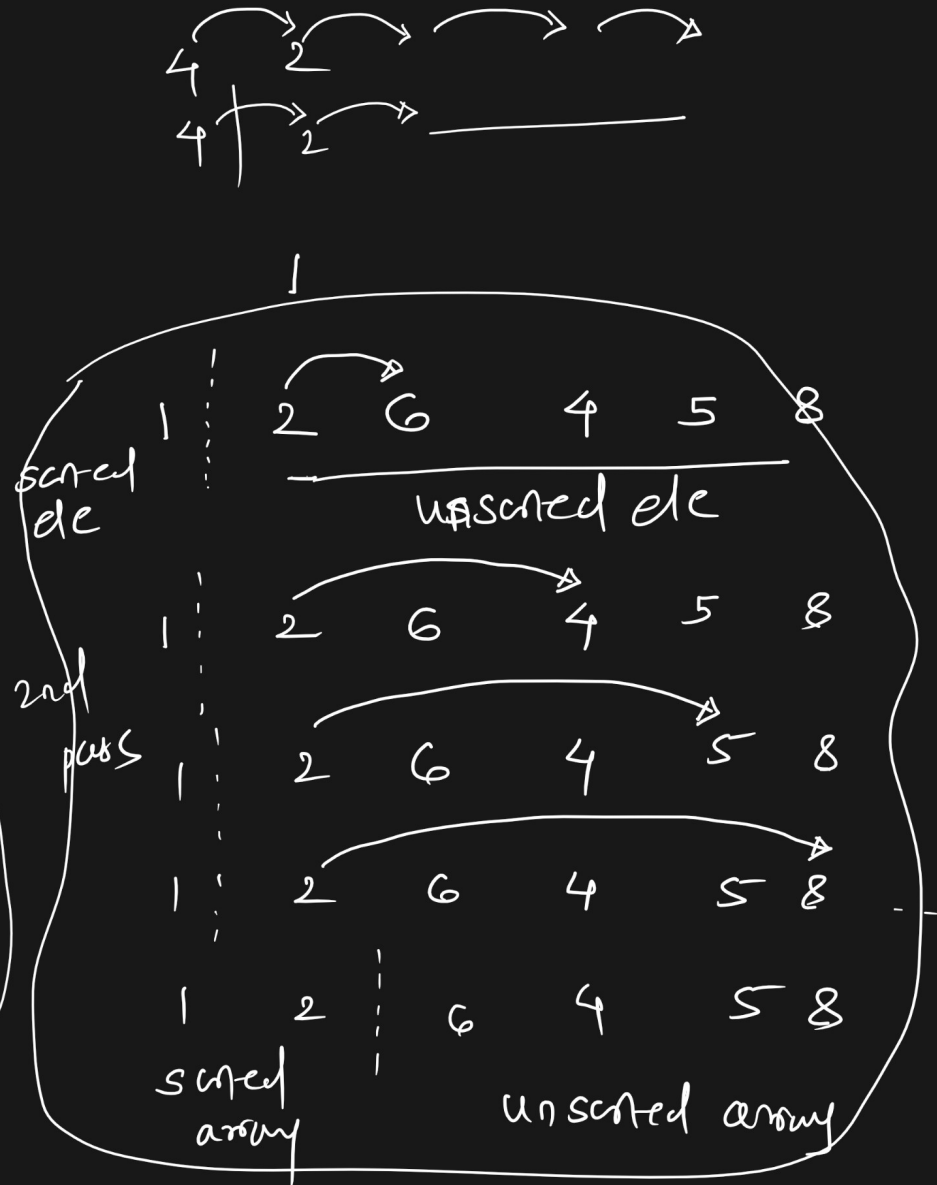 4 2
4 2
1
1 2 6 4 5 8
sorted
ele
unsorted ele
1 2 6 4 5 8
2nd
pass
1 2 6 4 5 8
1 2 6 4 5 8
1 2 6 4 5 8
sorted
array
unsorted array